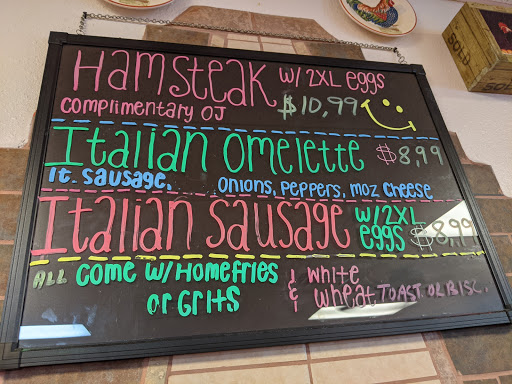 Hamsteak w/ 2XL eggs
complimentary OJ $10,99
Italian omelette $8,99
It. sausage, onions, peppers, moz cheese
Italian sausage w/2XL eggs $8,99
ALL come w/ Homefries or Grits
& white & wheat TOAST OR BISC.
SOLD